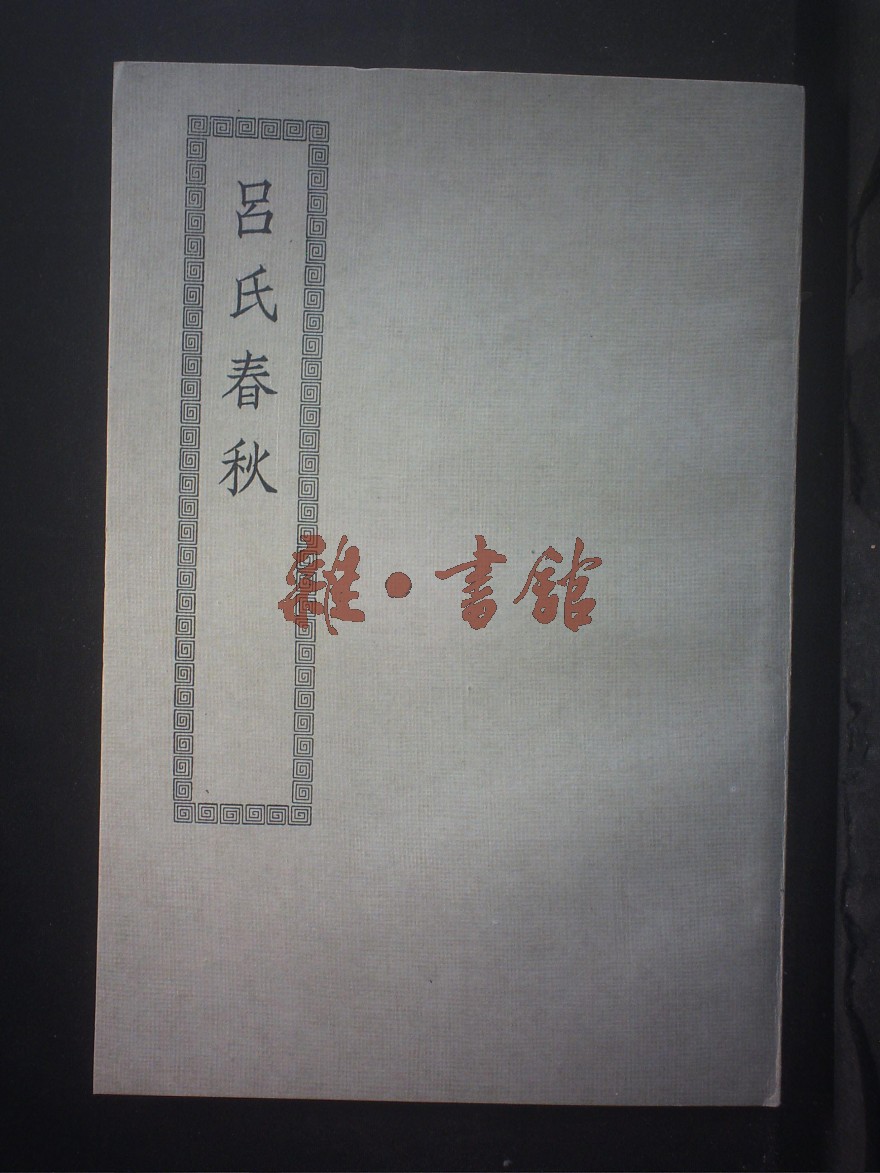 呂氏春秋
雜·書館